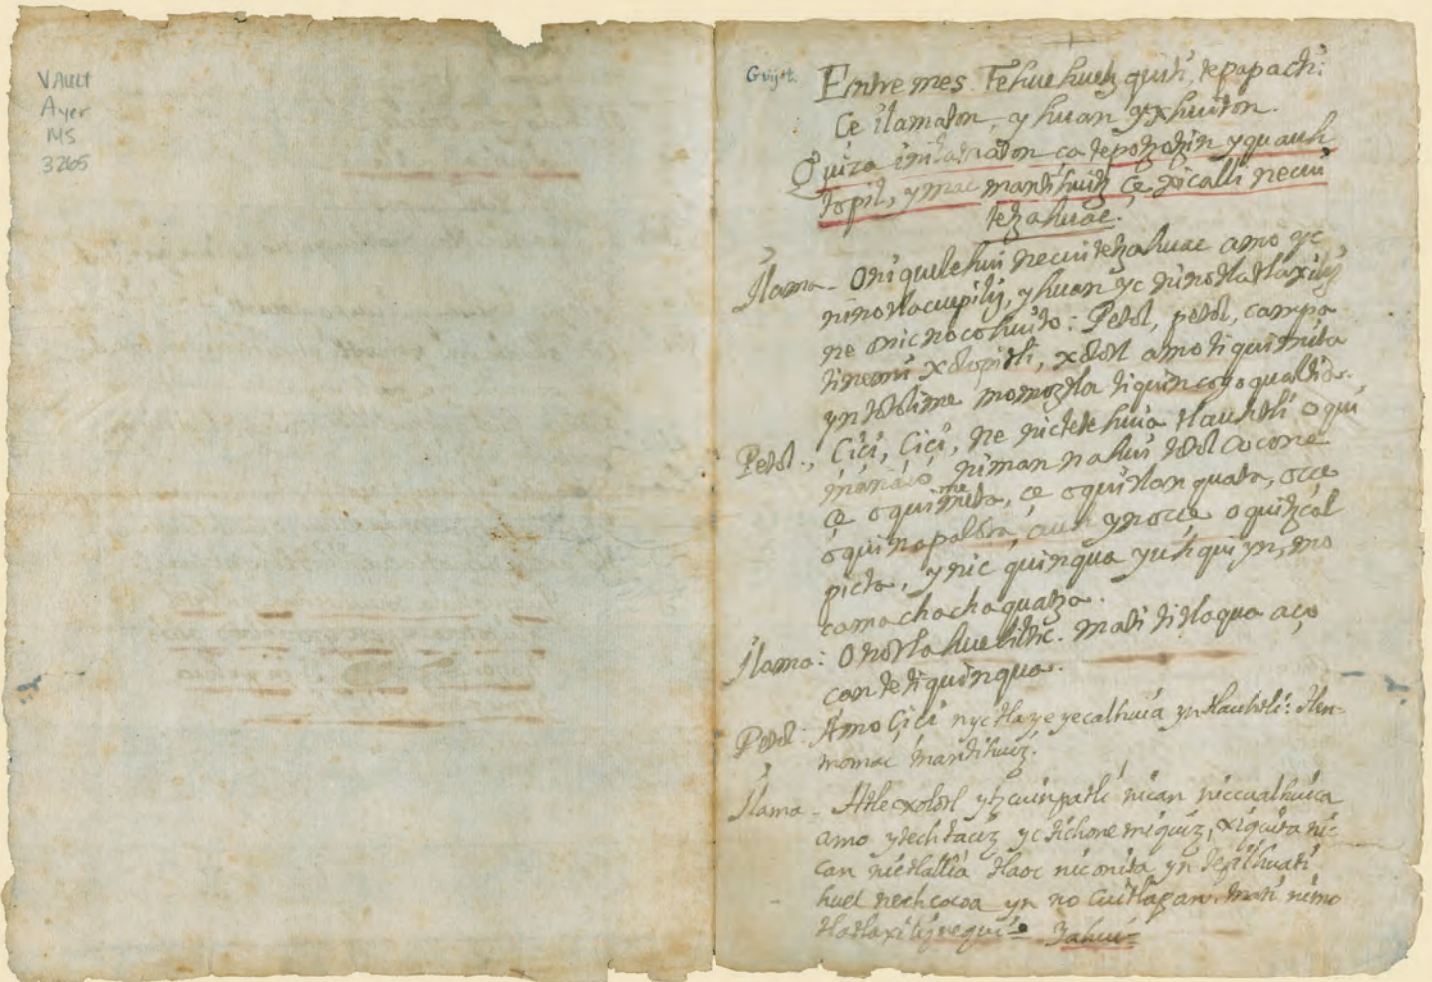 VAult
Ayer
MS
3265
Gvijst.
Entre mes. Tehuehuetz quiti, tepapachi:
Ce ilamaton, y huan yxhuiton.
Quiza in ilamaton ca tepotzotzin yquauh
topil, ymac mantihuitz ce xicalli necui
tetzahuac.
Ilama - Oniquelehui necuitetzahuac amo yc
ninotlacuepiliz, yhuan yc ninotlatlaxiliz
ne onicnocohuito: Petol, petol, campa
tinemi xolopitli, xolotl amo tiquimita
yn totolime momoztla tiquincoyoqualtia.
Petol., Cici, Cici, ne nictetehuia tlauhtli o qui
manaco niman nahui totol coconе
ce oquimita, ce oquitlanquata, occe
oquinapaloa, auh ynocce oquitzcal
picta, ynic quinqua yuhqui yn, mo
camachachaquatza.
Ilama: Onotlahuelittic. mati titlaqua aço
can te tiquinqua.
Petol: Amo Cici nyctlayeyecalhuia yn tlauhtli: tlen-
momac mantihuiz.
Ilama - Atle xolotl ytzcuinpatli nican niccualhuica
amo ytech taciz yc tichonemiquiz, xiquita ni-
can nictlallia tlaoc niconita yn tepilhuati
huel nechcocoa yn no Cuitlapan. mati nimo
tlatlaxiliznequi = Zahui =